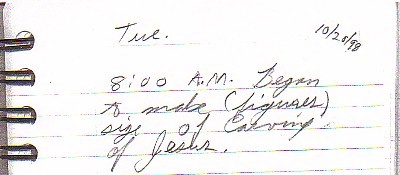 Tue. 10/20/98
8:00 A.M. Began
to make (figures)
size of Carving
of Jesus.